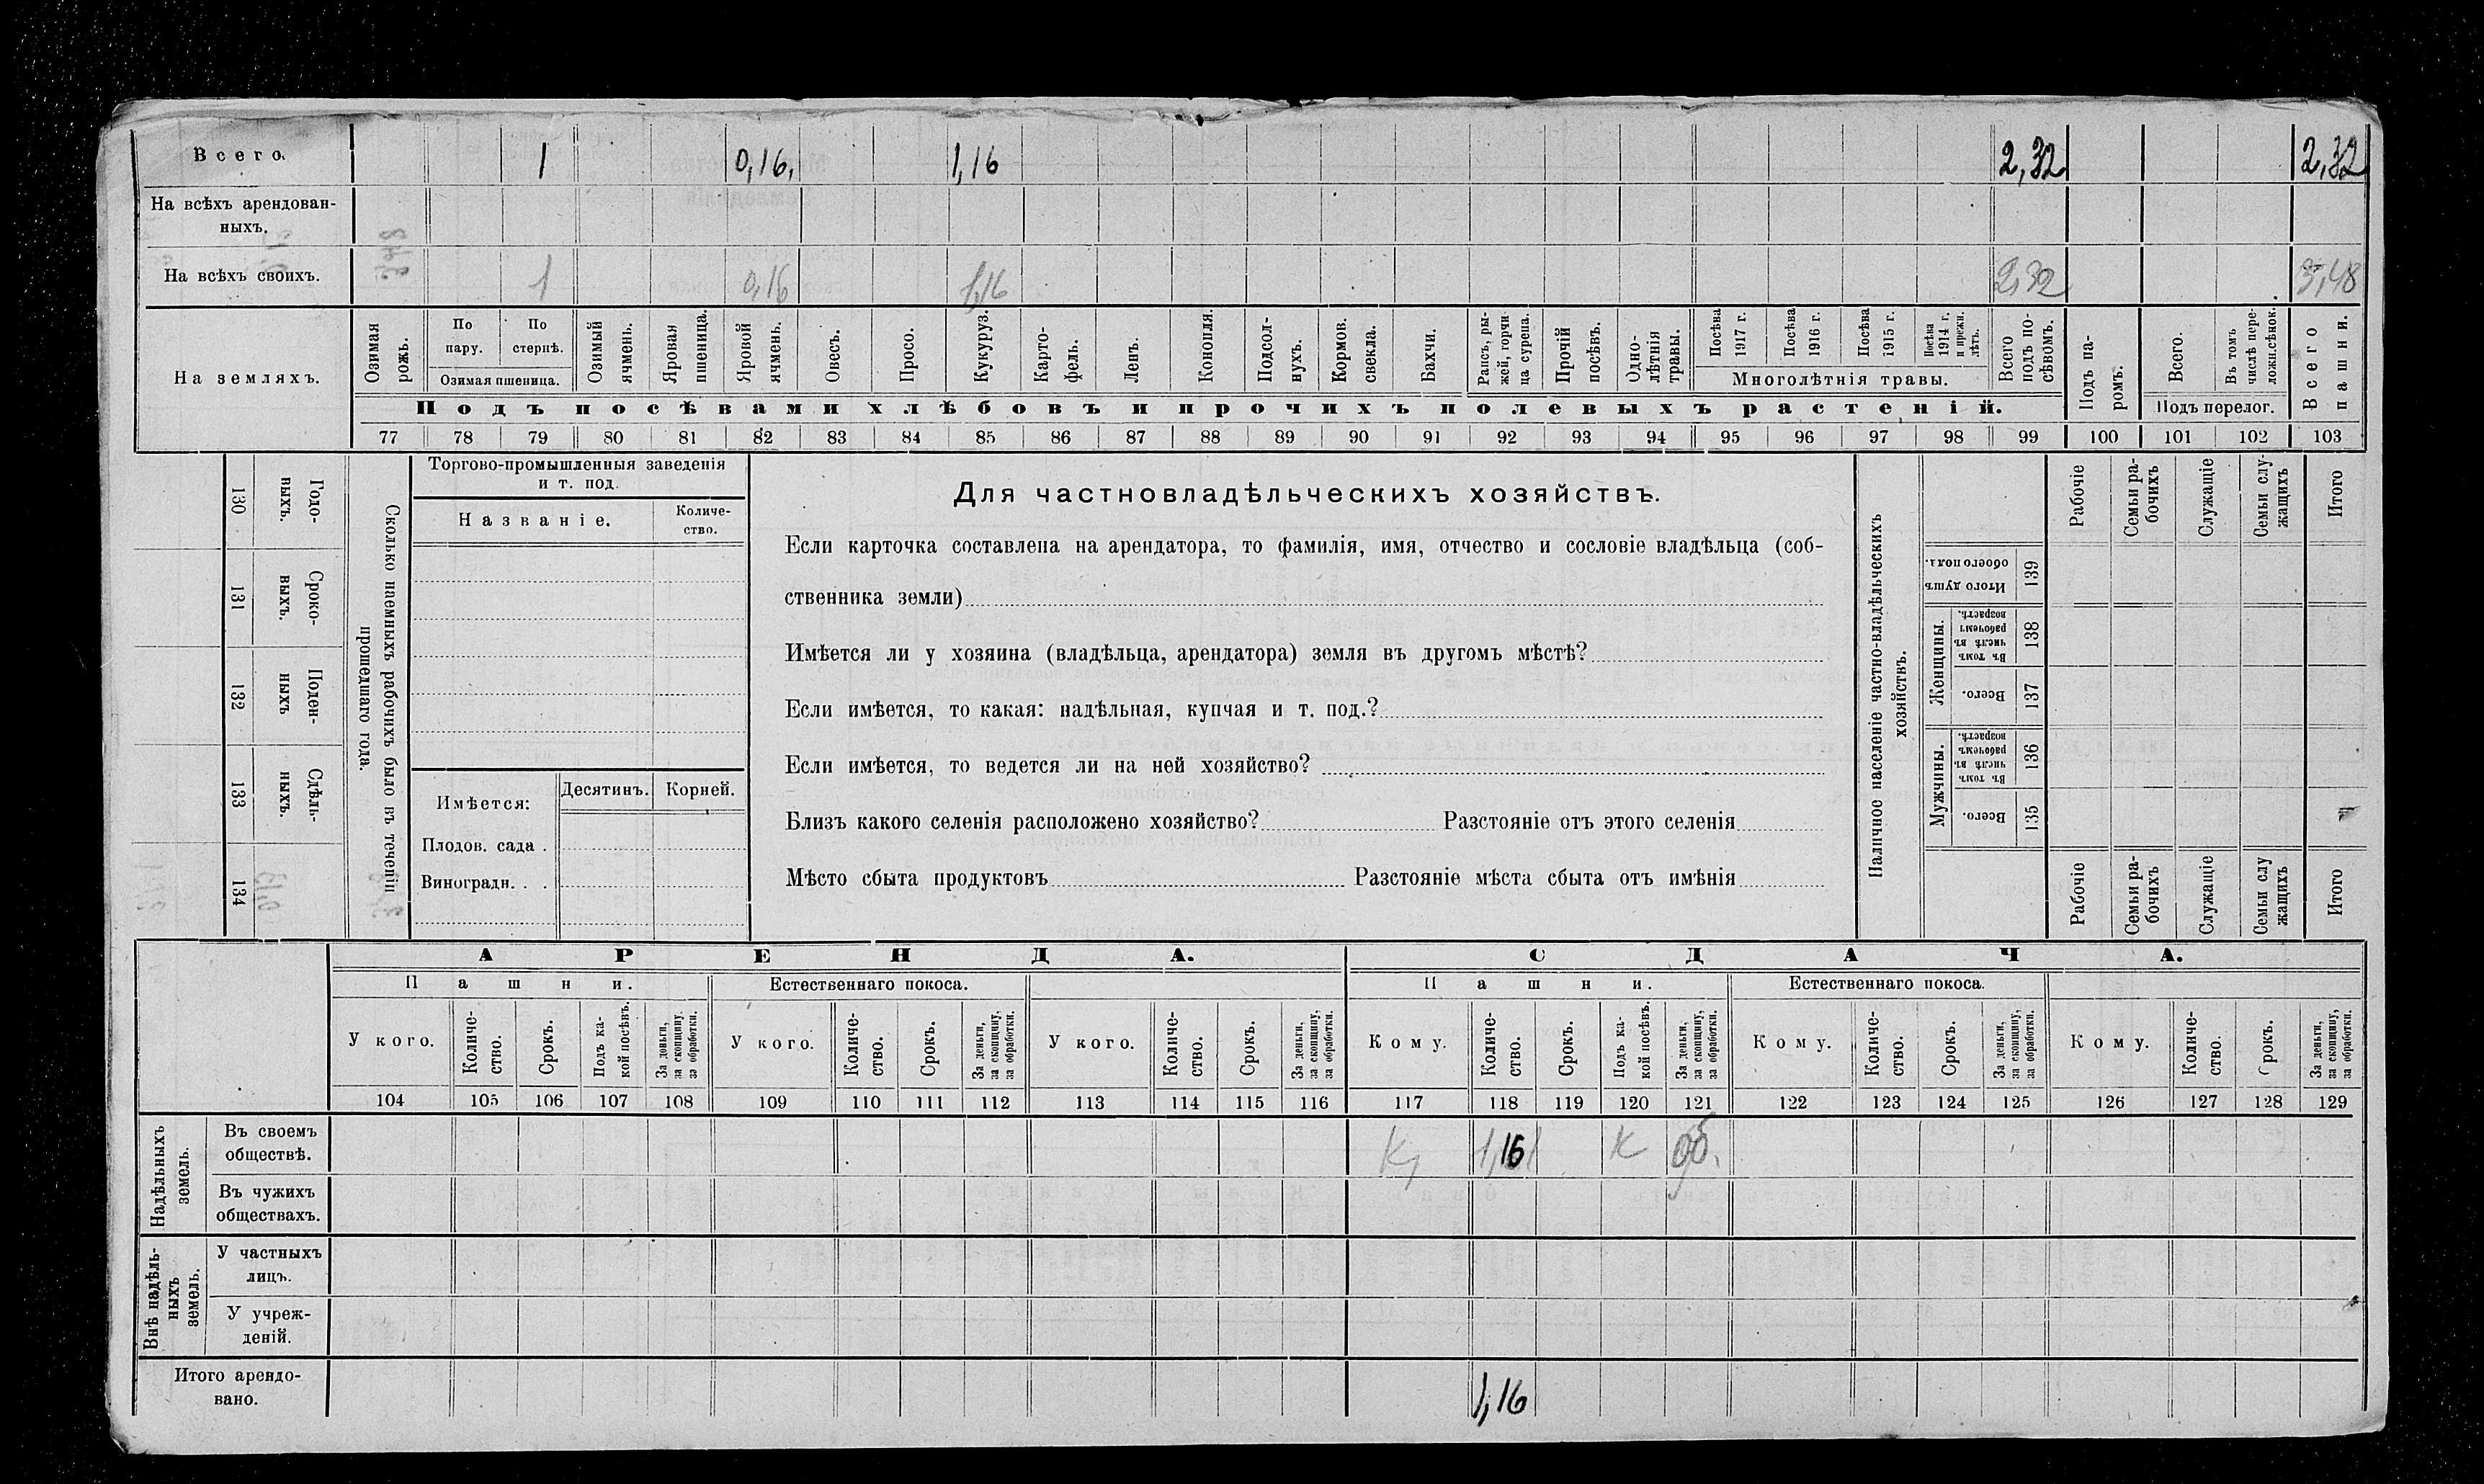 Всего. 1 0,16, 1,16 2,32 2,32
На всѣхъ арендован-
ныхъ.
На всѣхъ своихъ. 1 0,16 1,16 2,32 3,48
На земляхъ.
Озимая рожь.
По пару.
По стернѣ.
Озимая пшеница.
Озимый ячмень.
Яровая пшеница.
Яровой ячмень.
Овесъ.
Просо.
Кукуруз.
Карто-
фель.
Ленъ.
Конопля.
Подсол-
нухъ.
Кормов. свекла.
Бахчи.
Рапсъ, ры-
жей, горчи-
ца сурепа.
Прочій посѣвъ.
Одно-
лѣтнія травы.
Посѣва 1917 г.
Посѣва 1916 г.
Посѣва 1915 г.
Посѣва 1914 г. и прежн. лѣтъ.
Многолѣтнія травы.
Всего подъ по-
сѣвомъ.
Подъ па-
ромъ.
Всего.
Въ томъ числѣ пере-
ложн.сѣнок.
Подъ перелог.
Всего пашни.
Подъ посѣвами хлѣбовъ и прочихъ полевыхъ растеній.
77 78 79 80 81 82 83 84 85 86 87 88 89 90 91 92 93 94 95 96 97 98 99 100 101 102 103
130 Годо-
выхъ.
131 Сроко-
выхъ.
132 Поден-
ныхъ
133 Сдѣль-
ныхъ.
134
Сколько наемныхъ рабочихъ было въ теченіи
прошедшаго года.
Торгово-промышленныя заведенія
и т. под.
Названіе.
Количе-
ство.
Имѣется:
Десятинъ. Корней.
Плодов. сада .
Виноградн. . .
Для частновладѣльческихъ хозяйствъ.
Если карточка составлена на арендатора, то фамилія, имя, отчество и сословіе владѣльца (соб-
ственника земли)
Имѣется ли у хозяина (владѣльца, арендатора) земля въ другомъ мѣстѣ?
Если имѣется, то какая: надѣльная, купчая и т. под.?
Если имѣется, то ведется ли на ней хозяйство?
Близъ какого селенія расположено хозяйство? Разстояніе отъ этого селенія
Мѣсто сбыта продуктовъ Разстояніе мѣста сбыта отъ имѣнія
Наличное населеніе частно-владѣльческихъ
хозяйствъ.
Рабочіе
Семьи ра-
бочихъ
Служащіе
Семьи слу-
жащихъ
Итого
Итого душъ обоего пола.
139
Женщины.
Въ томъ числѣ въ рабочемъ возрастѣ.
138
Всего.
137
Мужчины.
Въ томъ числѣ въ рабочемъ возрастѣ.
136
Всего.
135
Рабочіе
Семьи ра-
бочихъ
Служащіе
Семьи слу
жащихъ
Итого
АРЕНДА. СДАЧА.
Пашни. Естественнаго покоса. Пашни. Естественнаго покоса.
У кого.
Количе-
ство.
Срокъ.
Подъ ка-
кой посѣвъ.
За деньги,
за скопщину,
за обработки.
У кого.
Количе-
ство.
Срокъ.
За деньги,
за скопщину,
за обработки.
У кого.
Количе-
ство.
Срокъ.
За деньги,
за скопщину,
за обработки.
Кому.
Количе-
ство.
Срокъ.
Подъ ка-
кой посѣвъ.
За деньги,
за скопщину,
за обработки.
Кому.
Количе-
ство.
Срокъ.
За деньги,
за скопщину,
за обработки.
Кому.
Количе-
ство.
Срокъ.
За деньги,
за скопщину,
за обработки.
104 105 106 107 108 109 110 111 112 113 114 115 116 117 118 119 120 121 122 123 124 125 126 127 128 129
Надѣльныхъ
земель.
Въ своемъ
обществѣ.
1,16 К
Въ чужихъ
обществахъ.
Внѣ надѣль-
ныхъ
земель.
У частныхъ
лицъ.
У учреж-
деній.
Итого арендо-
вано.
1,16